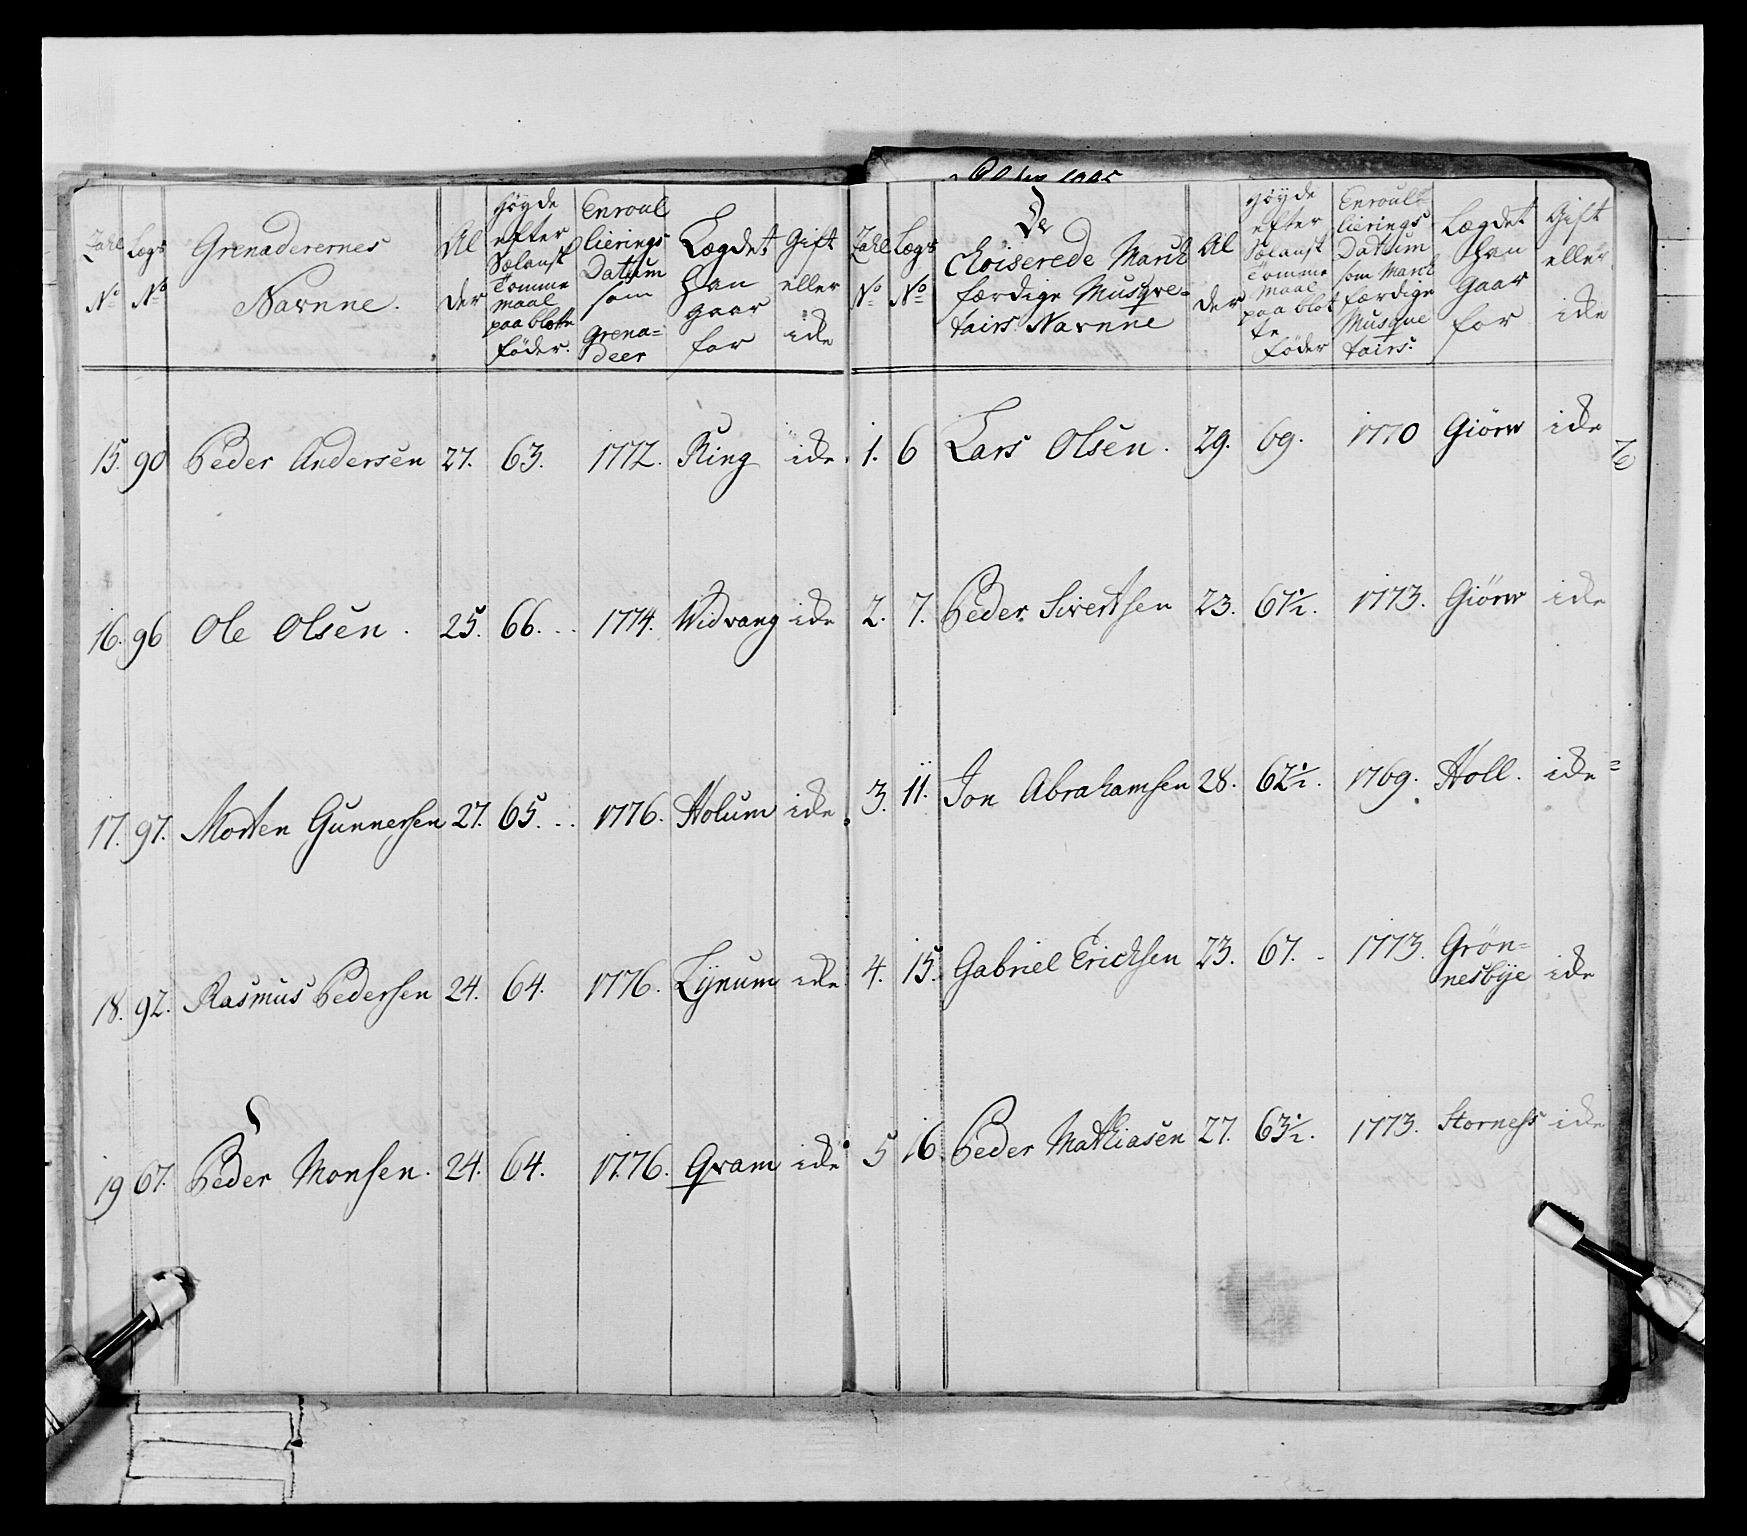 Zahl N° Lægs N° Grenaderernes Navnne. Al der Høyde efter Sælansk Tomme maal paa blotte føder. Enroullierings Datum som Grenadeer Lægdet han gaar for Gift eller ide
15. 90 Peder Andersen 27. 63. 1772. Ring ide.
16. 96 Ole Olsen. 25. 66. 1774. Widvang ide
17. 97. Morten Gunnersen 27. 65. 1776. Holum ide
18. 92. Rasmus Pedersen 24. 64. 1776. Lÿnum ide
19 67. Peder Monsen. 24. 64. 1776. Qvam ide
Zahl N° Lægs N° De Choiserede March færdige Musqvetairs Navnne Al der Høyde efter Sælansk Tomme maal paa blotte føder Enroullierings Datum som March færdige Musquetairs: Lægdet han gaar for Gift eller ide
1. 6 Lars Olsen. 29. 69. 1770 Giörw ide
2. 7. Peder Sivertsen 23. 67½. 1773. Giörw ide
3. 11. Jon Abrahamsen 28. 62½. 1769. Holl. ide
4. 15. Gabriel Ericksen 23. 67. 1773. Grön=
nesbÿe ide
5 16. Peder Mathiasen 27. 63½. 1773. Storness ide